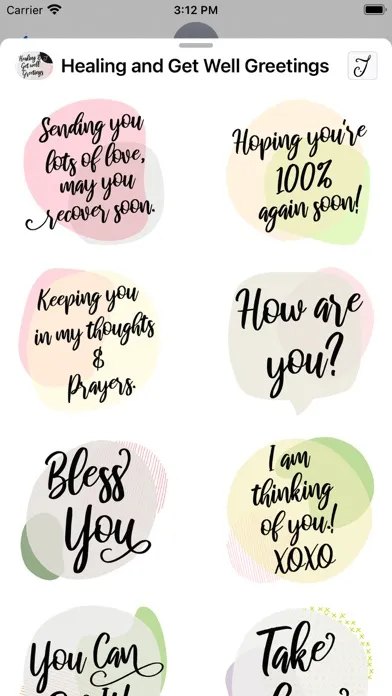 Carrier 3:12 PM
Healing & Get well Greetings
Healing and Get Well Greetings
J
Sending you
lots of love,
may you
recover soon.
Hoping you're
100%
again soon!
Keeping you
in my thoughts
&
Prayers.
How are
you?
Bless
You
I am
thinking
of you!
XOXO
You Can
Take